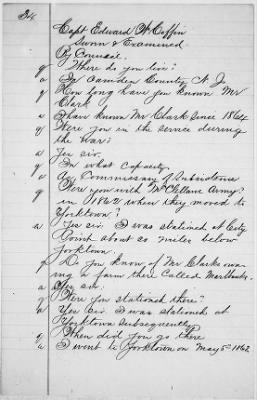 34
Capt Edward W Coffin
Sworn & Examined
By Counsel.
q Where do you live?
a In Camden County N. J.
q How long have you known Mr
Clark
a I have known Mr Clark since 1864
q Were you in the service during
the war?
a Yes sir
q In what capacity
a As Commissary of Subsistence
q Were you with McClellans Army
in 1862 when they moved to
Yorktown?
a Yes sir I was stationed at City
Point about 20 miles below
Yorktown.
q Do you know of Mr Clarks own-
ing a farm there called
a Yes sir.
q Were you stationed there?
a Yes sir I was stationed at
Yorktown subsequently
q When did you go there
a I went to Yorktown on May 5th 1862